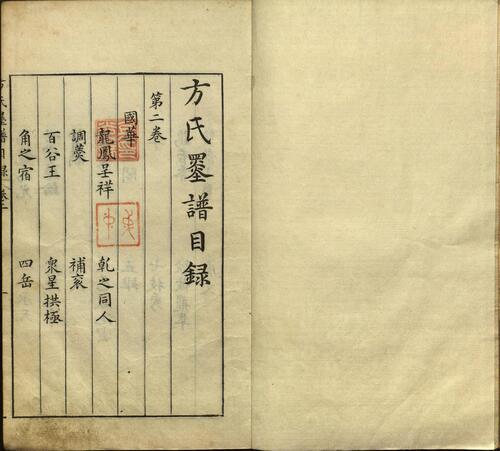 方氏墨譜目録
第二卷
國華
龍鳳呈祥 乾之同人
調羹 補衮
百谷王 衆星拱極
角之宿 四岳
方氏墨譜目録 卷二